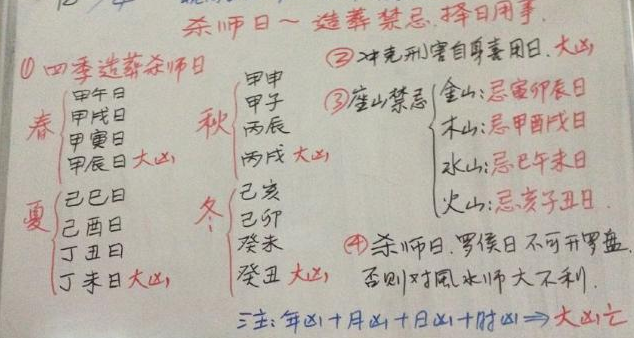 杀师日～造葬禁忌.择日用事.
①四季造葬杀师日
春
甲午日
甲戌日
甲寅日
甲辰日大凶
夏
己巳日
己酉日
丁丑日
丁未日大凶
秋
甲申
甲子
丙辰
丙戌大凶
冬
己亥
己卯
癸未
癸丑大凶
②冲克刑害自身喜用日.大凶
③座山禁忌
金山:忌寅卯辰日
木山:忌申酉戌日
水山:忌巳午未日
火山:忌亥子丑日.
④杀师日.罗侯日不可开罗盘.
否则对風水师大不利.
注:年凶+月凶+日凶+时凶⇒大凶亡